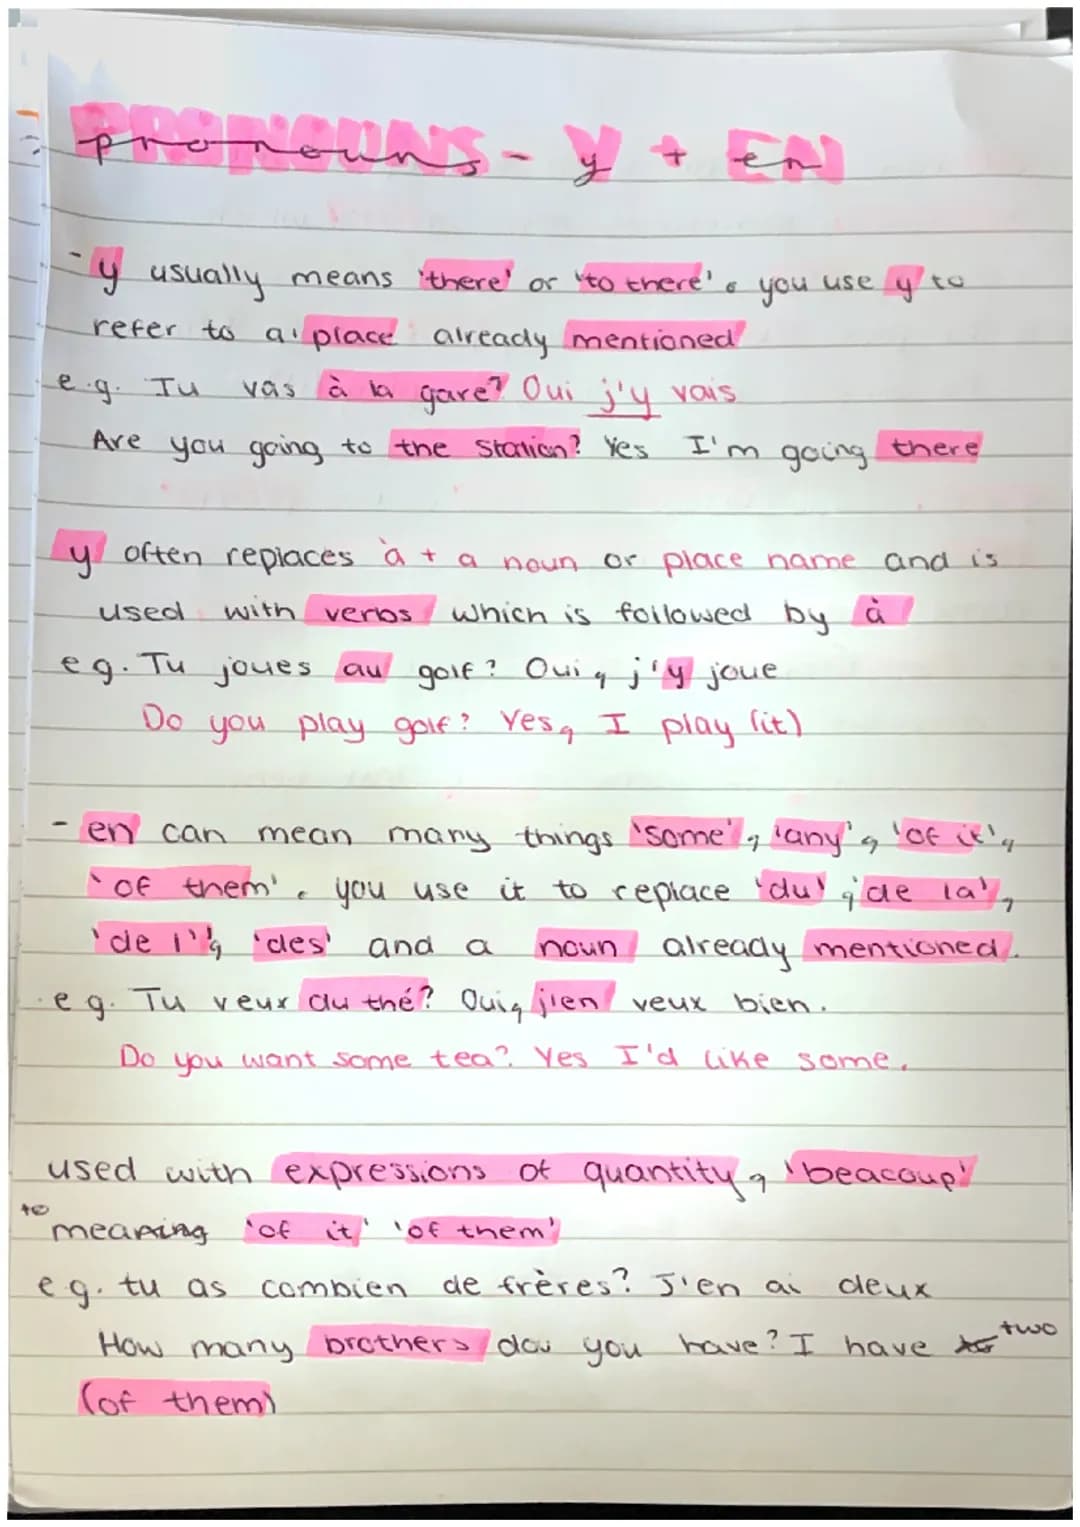 PRONOUNS - Y + EN
pronouns - y + en
- y usually means 'there' or 'to there'. you use y to
refer to a place already mentioned
e.g. Tu vas à la gare? Oui j'y vais
Are you going to the station? Yes I'm going there
y often replaces à + a noun or place name and is
used with verbs which is followed by à
eg. Tu joues au golf? Oui, j'y joue
Do you play golf? Yes, I play (it)
- en can mean many things 'some', 'any', 'of it',
'of them'. you use it to replace 'du', 'de la',
'de l'', 'des' and a noun already mentioned.
eg. Tu veux du thé? Oui, j'en veux bien.
Do you want some tea? Yes I'd like some.
used with expressions of quantity, 'beacoup'
to meaning 'of it' 'of them'
eg. tu as combien de frères? J'en ai deux
How many brothers dou you have? I have two
(of them)